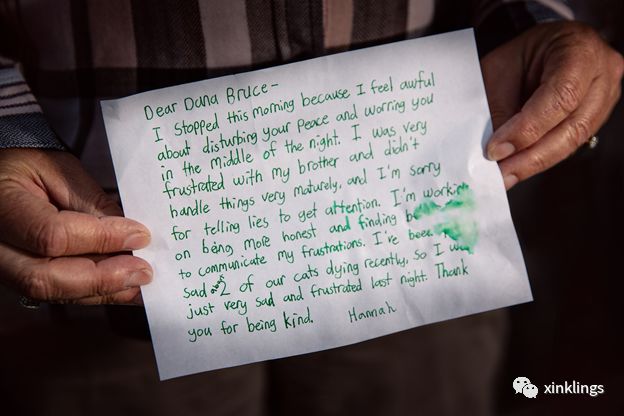 Dear Dana Bruce-
I stopped this morning because I feel awful
about disturbing your peace and worring you
in the middle of the night. I was very
frustrated with my brother and didn't
handle things very maturely, and I'm sorry
for telling lies to get attention. I'm working
on being more honest and finding
to communicate my frustrations. I've been
sad about 2 of our cats dying recently, so I was
just very sad and frustrated last night. Thank
you for being kind. Hannah
xinklings